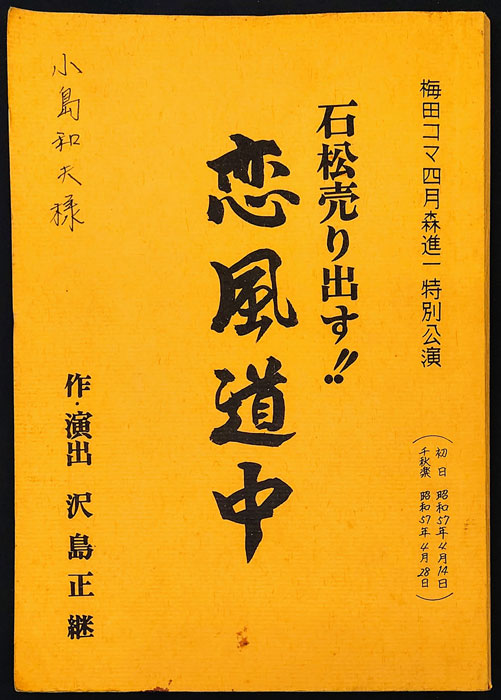 梅田コマ四月森進一特別公演
(初日 昭和57年4月14日
千秋楽 昭和57年4月28日)
石松売り出す!!
恋風道中
作・演出 沢島正継
小島和夫様